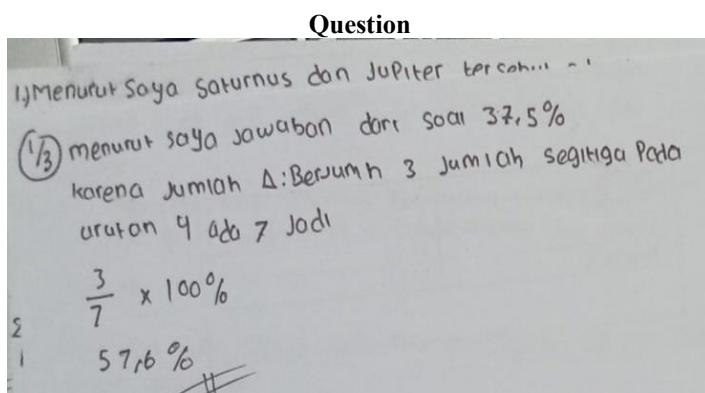 Question
1.) Menurut saya saturnus dan Jupiter
1/3 menurut saya jawaban dari soal 37,5%
karena Jumlah Δ: Berjumlh 3 Jumlah segitiga Pada
urutan 4 ada 7 Jadi
3/7 x 100%
57,6 %